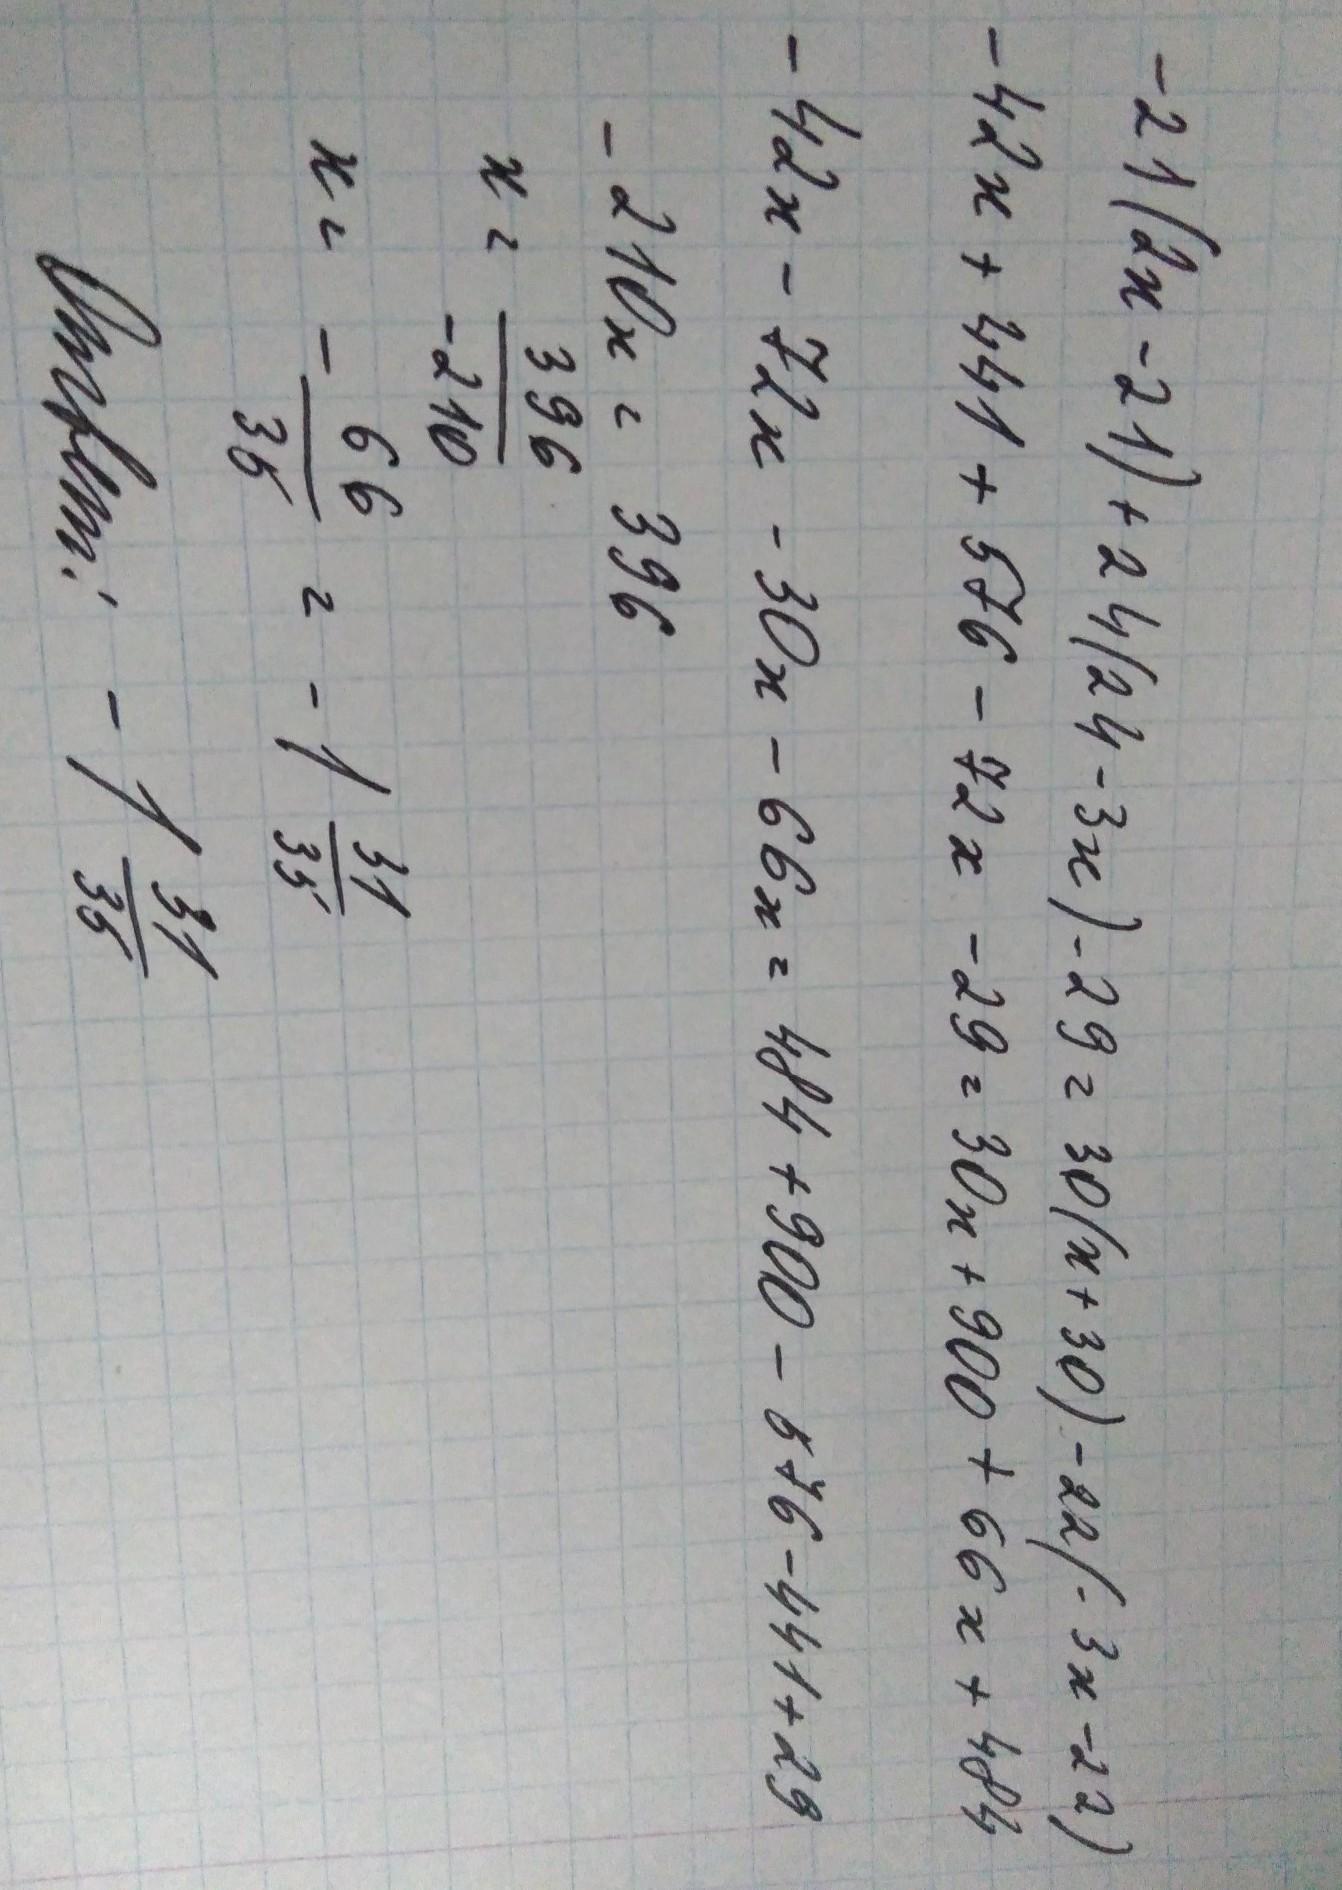 -21(2x-21)+24(24-3x)-29=30(x+30)-22(-3x-22)
-42x+441+576-72x-29=30x+900+66x+484
-42x-72x-30x-66x=484+900-576-441+29
-210x=396
x=396/-210
x=-66/35=-1 31/35
Ответ: -1 31/35